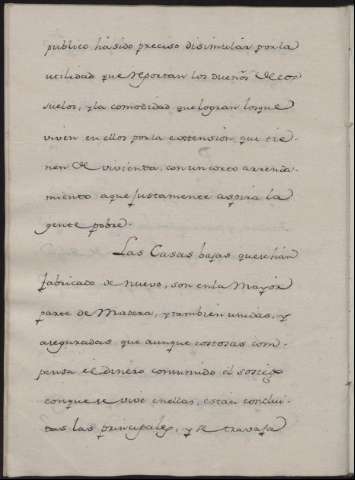 publico há sido preciso disimulár por la
utilidad que reportan los dueños de los
suelos, y la comodidad que logran los que
viven en ellos por la extensión, que tie-
nen de vivienda, con un corto arrenda-
miento a que justamente aspira la
gente pobre.
Las Casas bajas que se hán
fabricado de nuevo, son en la mayór
parte de Madera, y tambien unidas, y
aseguradas que aunque costosas com-
pensa el dinero consumido el sosiego
con que se vive en ellas, están conclui-
das las principales, y se trabaja